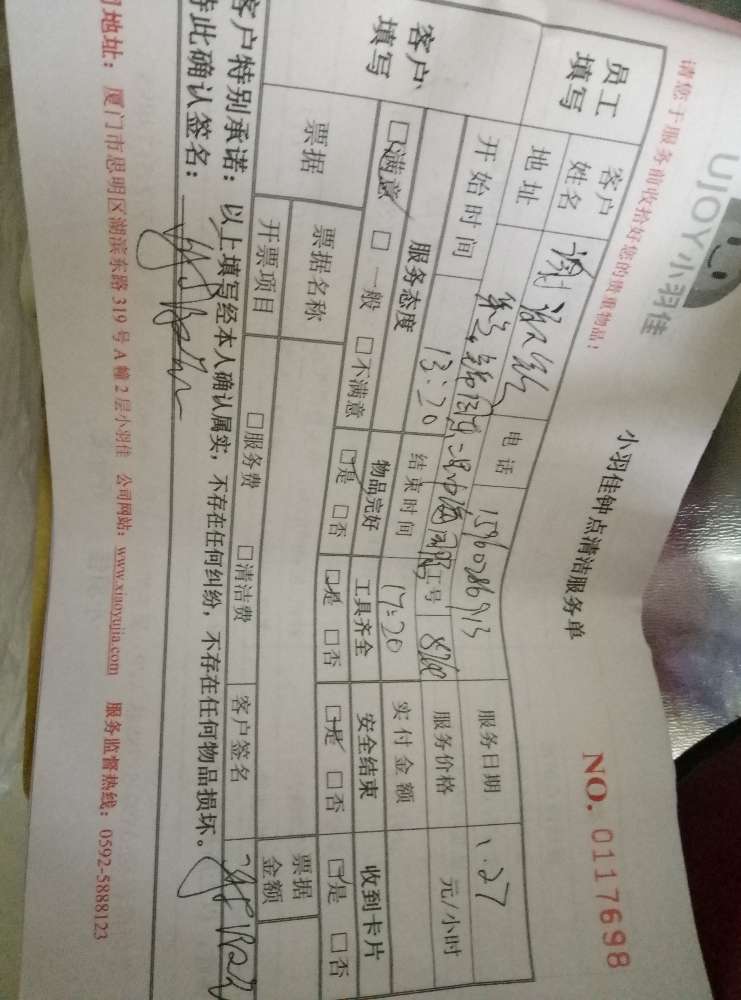 UJOY小羽佳
请您于服务前收拾好您的贵重物品！
小羽佳钟点清洁服务单
NO. 0117698
员工填写 客户姓名 电话 服务日期 1.27
地址 工号 服务价格 元/小时
开始时间 13:20 结束时间 17:20 实付金额
客户填写 服务态度 物品完好 工具齐全 安全结束 收到卡片
□满意 □一般 □不满意 □是 □否 □是 □否 □是 □否 □是 □否
票据 票据名称 票据金额
开票项目 □服务费 □清洁费 客户签名
客户特别承诺：以上填写经本人确认属实，不存在任何纠纷，不存在任何物品损坏。
特此确认签名：
司地址：厦门市思明区湖滨东路319号A幢2层小羽佳 公司网站：www.xiaoyujia.com 服务监督热线：0592-5888123